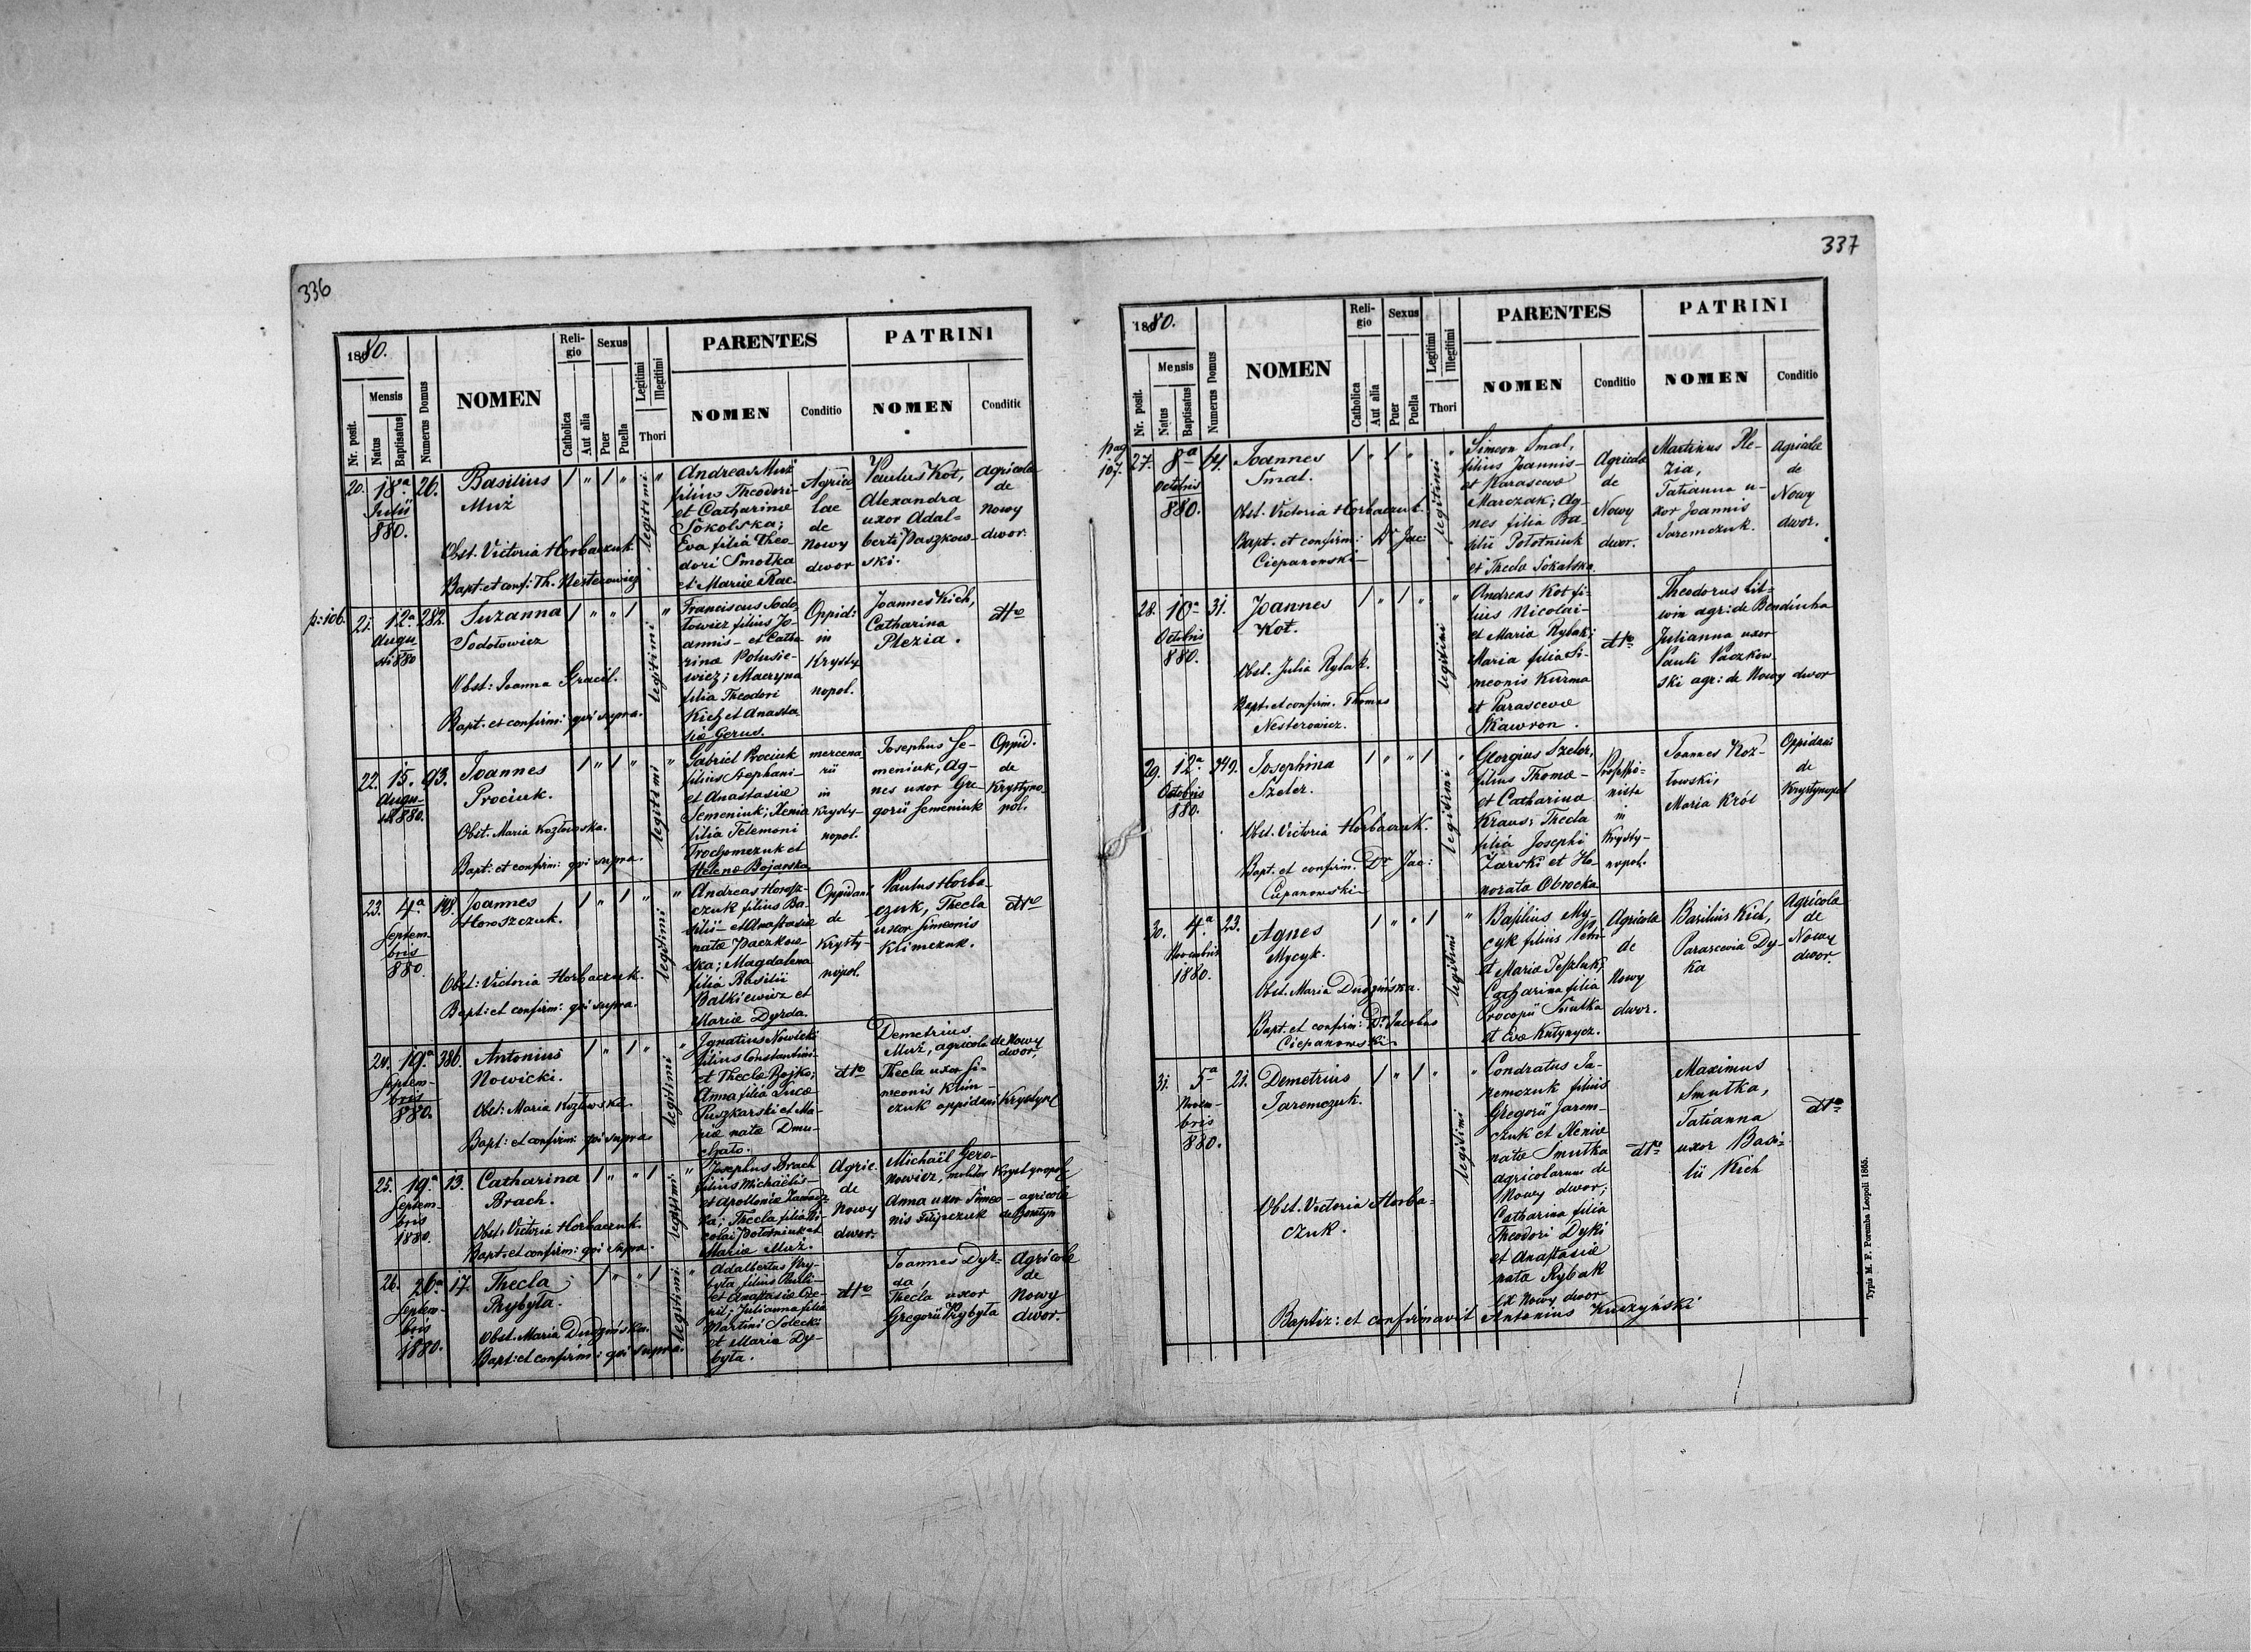 336
1880.
Nr. posit.
Mensis
Natus
Baptisatus
Numerus Domus
NOMEN
Religio
Catholica
Aut alia
Sexus
Puer
Puella
Legitimi
Illegitimi
Thori
PARENTES
NOMEN
Conditio
PATRINI
NOMEN
Conditio
20. 18a Julii 880. 26.
Basilius
Muż
Obst. Victoria Horbaczuk.
Bapt: et conf: Th. Nesterowicz
legitimi
Andreas Muż
filius Theodori
et Catharinæ
Sokolska;
Eva filia Theo-
dori Smolka
et Mariæ Rac.
Agrico
lae
de
Nowy
dwor
Paulus Kot,
Alexandra
uxor Adal-
berti Paszkow-
ski.
agricola
de
Nowy
dwor.
p: 106.
21. 12a Augu sti 880 282.
Suzanna
Sodołowicz
Obst: Joanna Gracil.
Bapt. et confirm: qui supra.
legitimi
Franciscus Sodo
łowicz filius Jo-
annis - et Catha
rinæ Polusie-
wicz; Macryna
filia Theodori
Kich et Anasta
siæ Gerus.
Oppid:
in
Krysty
nopol.
Joannes Kich,
Catharina
Plezia.
dtto
22. 15. Augu- sti 880. 93.
Joannes
Prociuk.
Obst. Maria Kozłowska.
Bapt: et confirm: qui supra.
legitimi
Gabriel Prociuk
filius Stephani-
et Anastasiæ
Semeniuk; Xenia
filia Telemoni
Trochomczuk et
Helenæ Bojarska
mercena
rii
in
Krysty-
nopol.
Josephus Se-
meniuk, Ag-
nes uxor Gre-
gorii Semeniuk
Oppid.
de
Krystyno
pol.
23. 4a Septem bris 880. 148.
Joannes
Horoszczuk.
Obst: Victoria Horbaczuk.
Bapt: et confirm: qui supra.
legitimi
Andreas Horosz-
czuk filius Ba-
silii - et Anastasiæ
nata Paczkow
ska; Magdalena
filia Basilii
Balkiewicz et
Mariæ Dyrda.
Oppidani
de
Krysty-
nopol.
Paulus Horba-
czuk, Thecla
uxor Simeonis
Klimczuk.
dtto
24. 19a Septem- bris 880. 386.
Antonius
Nowicki.
Obst: Maria Kozłowska.
Bapt: et confirm: qui supra.
legitimi
Ignatius Nowicki
filius Constantini-
et Theclæ Bojko;
Anna filia Lucæ
Puszkarski et Ma-
riæ nata Dmu-
chało.
dtto
Demetrius
Muż, agricola de Nowy
dwor.
Thecla uxor Si-
meonis Klim-
czuk oppidani Krystyn
25. 19a Septem bris 1880. 13.
Catharina
Brach.
Obst: Victoria Horbaczuk.
Bapt: et confirm: qui supra.
legitimi
Josephus Brach
filius Michaelis-
Thecla filia Ni-
colai Połotniuk et
Mariæ Muż.
Agric.
de
Nowy
dwor.
Michaël Gero-
nowicz, molitor Krystynopol
Anna uxor Simeo- agricola
nis Filipczuk
26. 26a Septem- bris 1880. 17.
Thecla
Przybyła.
Obst. Maria Dudzińska.
Bapt: et confirm: qui supra.
legitimi
Adalbertus Przy-
była filius Pauli-
et Anastasiæ
Julianna filia
Martini Solecki
et Maria Dy-
była.
dtto
Joannes Dyr-
da,
Thecla uxor
Gregorii Przybyła
Agricolæ
de
Nowy
dwor.
337
1880.
Nr. posit.
Mensis
Natus
Baptisatus
Numerus Domus
NOMEN
Religio
Catholica
Aut alia
Sexus
Puer
Puella
Legitimi
Illegitimi
Thori
PARENTES
NOMEN
Conditio
PATRINI
NOMEN
Conditio
pag 107.
27. 8a Octobris 880.
Joannes
Smal.
Obst. Victoria Horbaczuk.
Bapt. et confirm: Dr Jac:
Ciepanowski
legitimi
Simeon Smal,
filius Joannis-
et Parascevæ
Marczak; Ag-
nes filia Ba-
silii Połotniuk
et Theclæ Sokalska
Agricola
de
Nowy
dwor.
Martinus Ple-
zia,
Tatianna u-
xor Joannis
Jaremczuk.
Agricolæ
de
Nowy
dwor.
28. 10a Octobris 880. 31.
Joannes
Kot.
Obst. Julia Rybak.
Bapt. et confirm. Thomas
Nesterowicz.
legitimi
Andreas Kot fi-
lius Nicolai-
et Maria Rybak;
Maria filia Si-
meonis Kurma
et Parascevæ
Skawron.
dtto
Theodorus Lit-
win agr: de Bendiucha
Julianna uxor
Pauli Paczkow-
ski agr: de Nowy dwor
29. 12a Octobris 880. 249.
Josephina
Szeler.
Obst. Victoria Horbaczuk.
Bapt. et confirm. Dr Jac:
Ciepanowski
legitimi
Georgius Szeler,
filius Thomæ-
et Catharinæ
Kraus; Thecla
filia Josephi
Zarski et Ho
norata Obrocka
in
Krysty-
nopol.
Joannes Koz-
łowski,
Maria Król
Oppidani
de
Krystynopol
30. 4a Novembris 1880. 23.
Agnes
Mycyk.
Obst. Maria Dudzińska.
Bapt. et confirm: Dr Jacobus
Ciepanowski
legitimi
Basilius My-
cyk filius Petri
et Mariæ
Catharina filia
Procopii Smutka
et Evæ
Agricola
de
Nowy
dwor.
Basilius Kich,
Parascevia Dy-
ka
Agricola
de
Nowy
dwor.
31. 5a Novem- bris 880. 21.
Demetrius
Jaremczuk.
Obst. Victoria Horba-
czuk.
legitimi
Condratus Ja-
remczuk filius
Gregorii Jarem-
czuk et Xeniæ
nata Smutka
agricolarum de
Nowy dwor;
Catharina filia
Theodori Dyki
et Anastasiæ
nata Rybak
ex Nowy dwor
dtto
Maximus
Smutka,
Tatianna
uxor Basi-
lii Kich
dtto
Baptiz: et confirmavit Antonius Kuszyński
Typis M. F. Poremba Leopoli 1865.